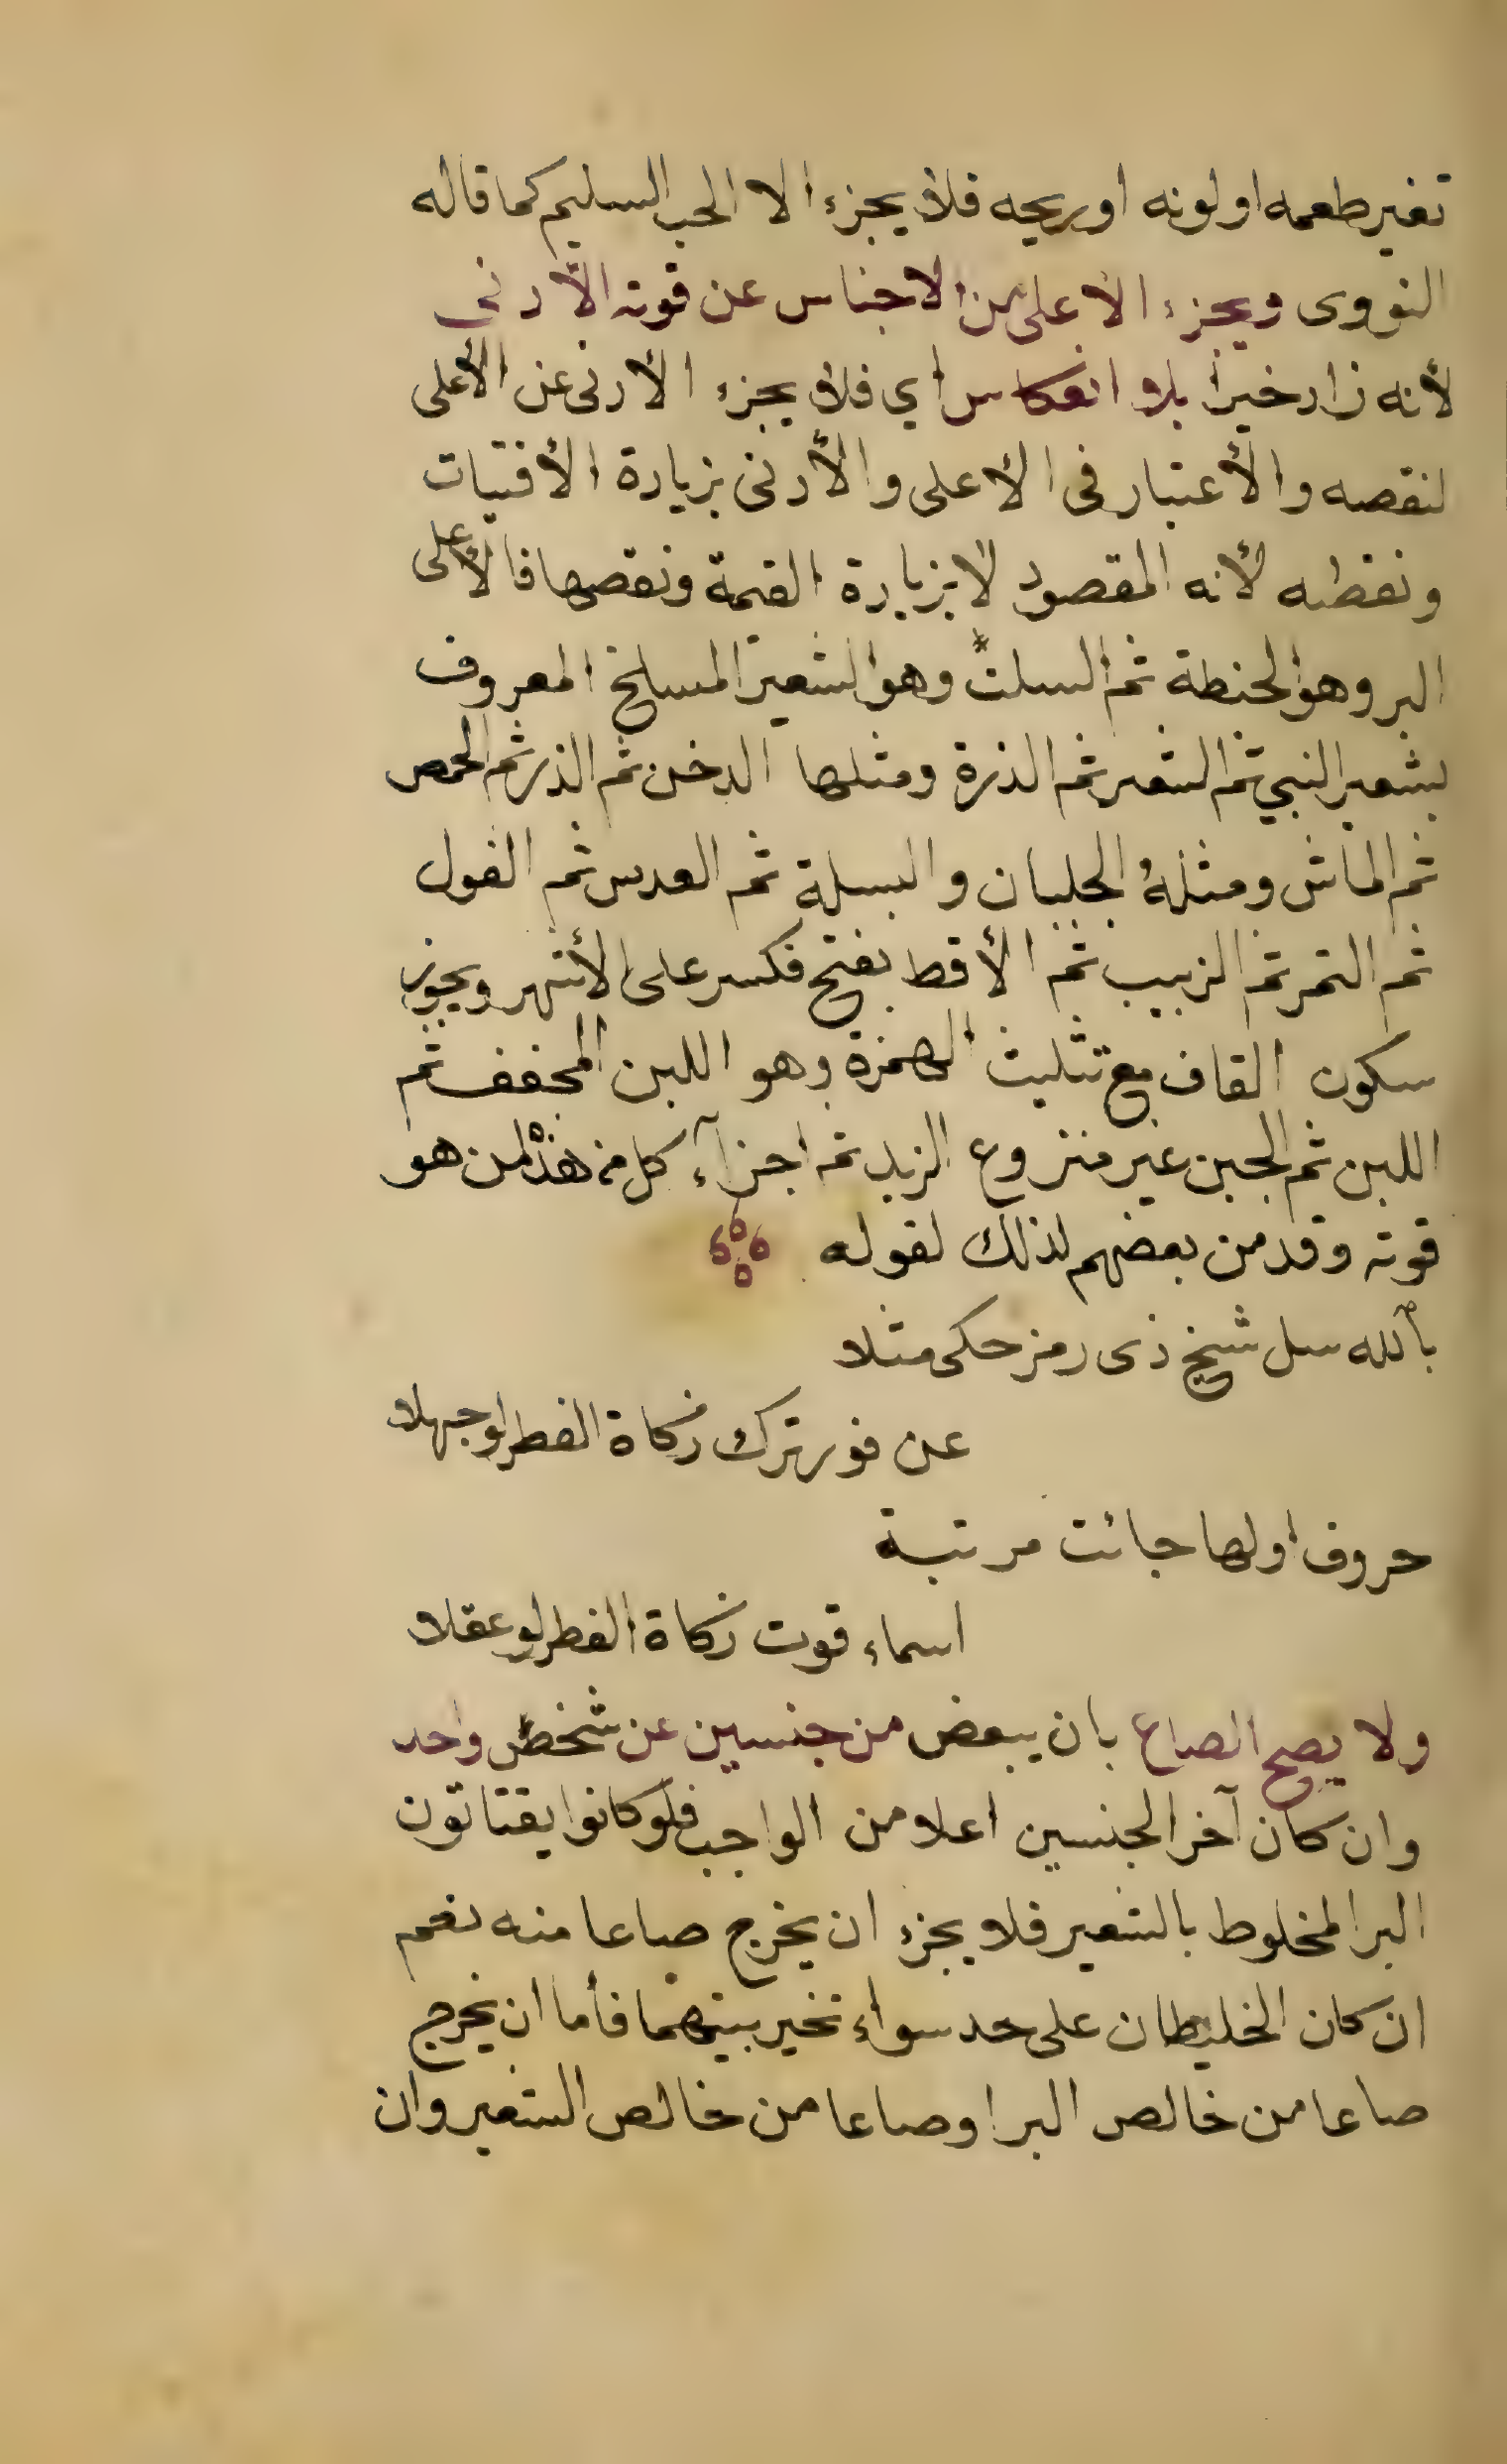 تغير طعمه او لونه او ريحه فلا يجزء الا الحب السليم كما قاله
النووى ويجزء الأعلى من الاجناس عن قوته الأدنى
لأنه زاد خيرا بلا انعكاس اي فلا يجزء الأدنى عن الأعلى
لنقصه والأعتبار فى الأعلى والأدنى بزيادة الأقتيات
ونقصه لأنه المقصود لا بزيادة القيمة ونقصها فالأعلى
البر وهو الحنطة ثم السلت وهو الشعير المسلخ المعروف
بشعير النبي ثم الشعير ثم الذرة ومثلها الدخن ثم الذر ثم الحمص
ثم الماش ومثله الجلبان والبسلة ثم العدس ثم الفول
ثم التمر ثم الزبيب ثم الأقط بفتح فكسر على الأشهر ويجوز
سكون القاف مع تثليث الهمزة وهو اللبن المجفف ثم
اللبن ثم الجبن غير منزوع الزبد ثم اجزآء كل من هذه لمن هو
قوته وقد من بعضهم لذلك لقوله
بالله سل شيخ ذى رمز حكى مثلا
عن فور ترك زكاة الفطر لو جهلا
حروف اولها جائت مرتبة
اسماء قوت زكاة الفطر لو عقلا
ولا يصح الصاع بان يبعض من جنسين عن شخص واحد
وان كان آخر الجنسين اعلا من الواجب فلو كانوا يقتاتون
البر المخلوط بالشعير فلا يجزء ان يخرج صاعا منه نعم
ان كان الخليطان على حد سواء تخير بينهما فأما ان يخرج
صاعا من خالص البر او صاعا من خالص الشعير وان